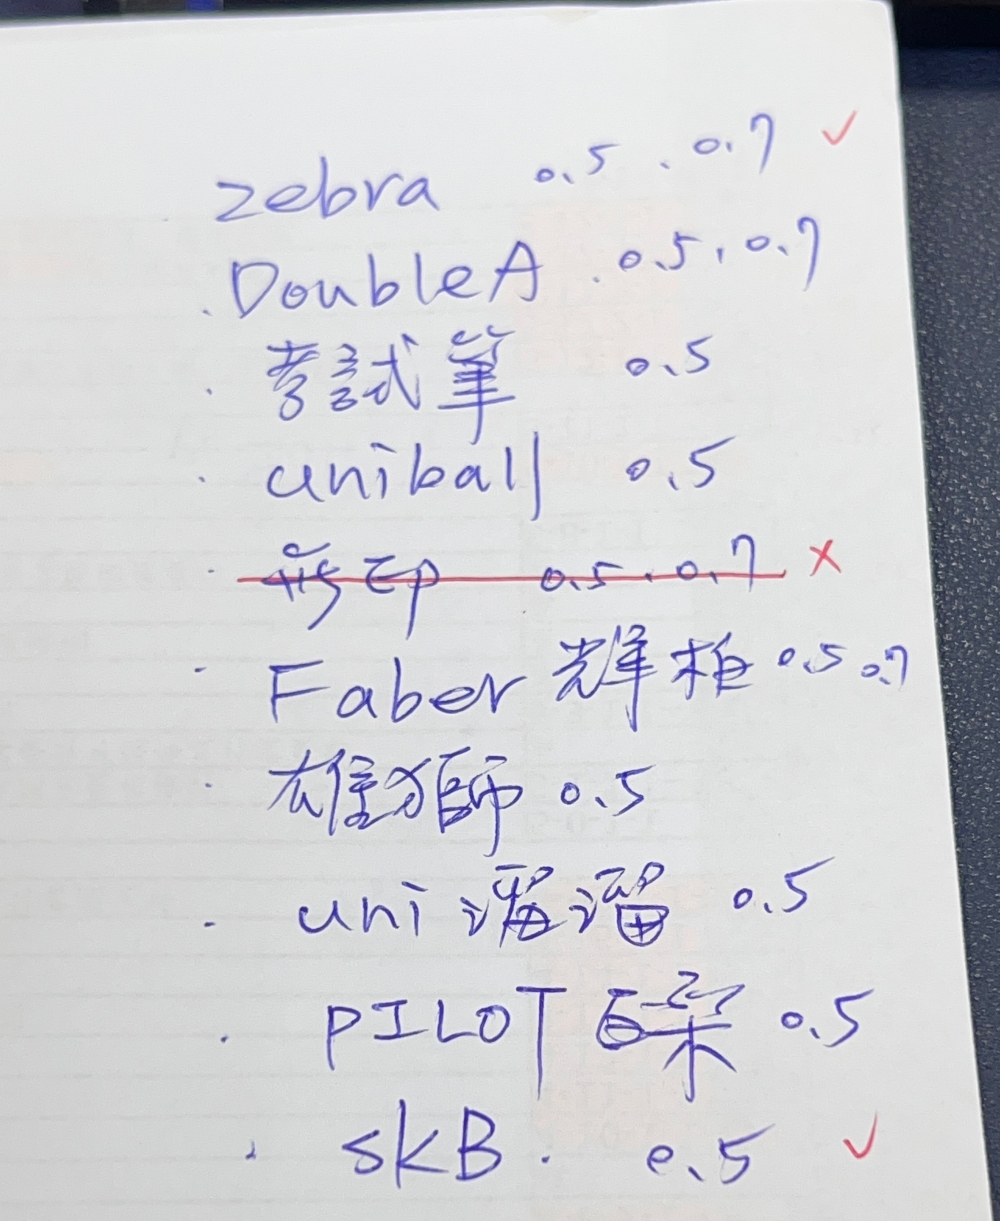 zebra 0.5、0.7 ✓
DoubleA 0.5、0.7
考試筆 0.5
uniball 0.5
0.5、0.7 ×
Faber 輝柏 0.5 0.7
雄獅 0.5
uni 溜溜 0.5
PILOT 百樂 0.5
SKB 0.5 ✓